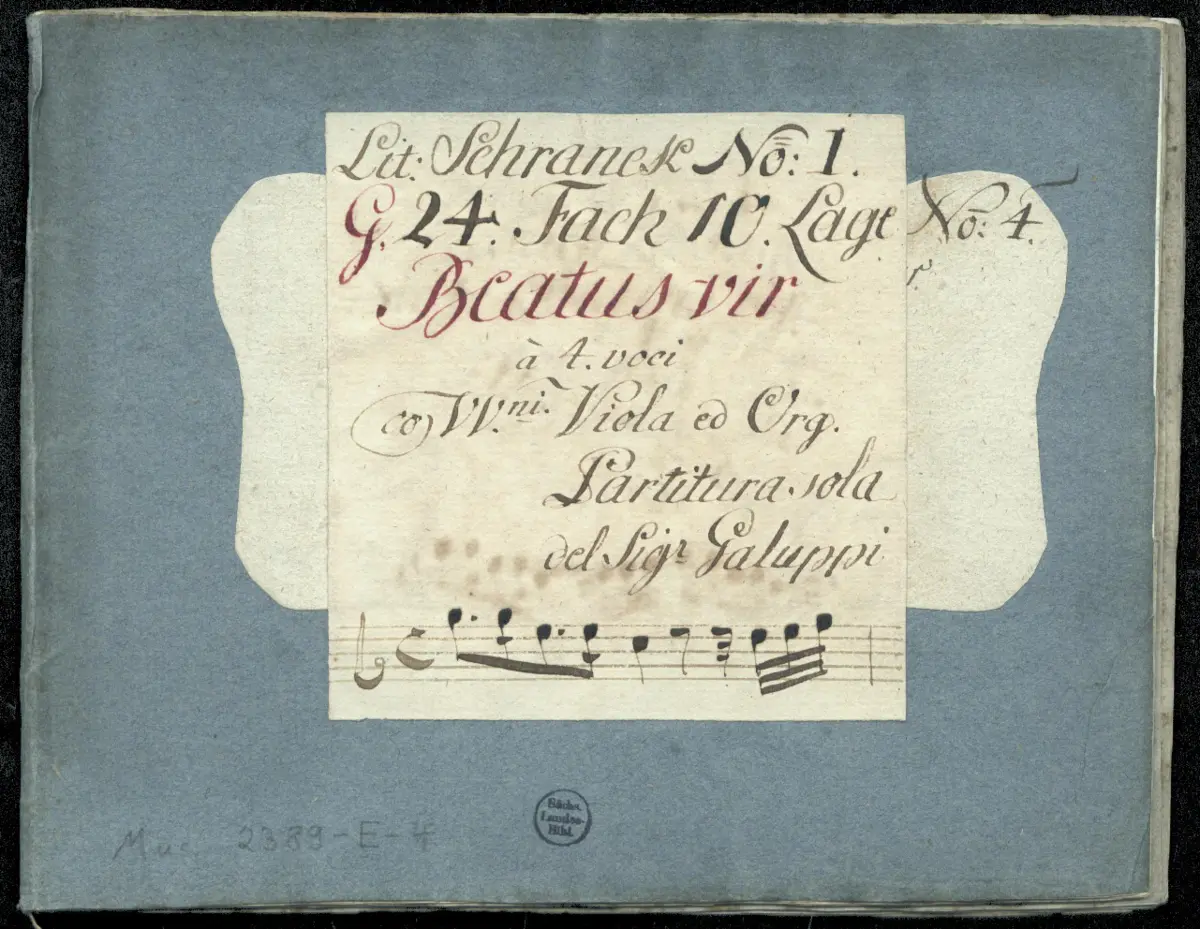 Lit: Schranck No: 1.
G. 24. Fach 10. Lage No: 4.
Beatus vir
à 4. voci
co VV.ni Viola ed Org.
Partitura sola
del Sigr Galuppi
Sächs.
Landes-
Bibl.
Mus. 2389-E-4